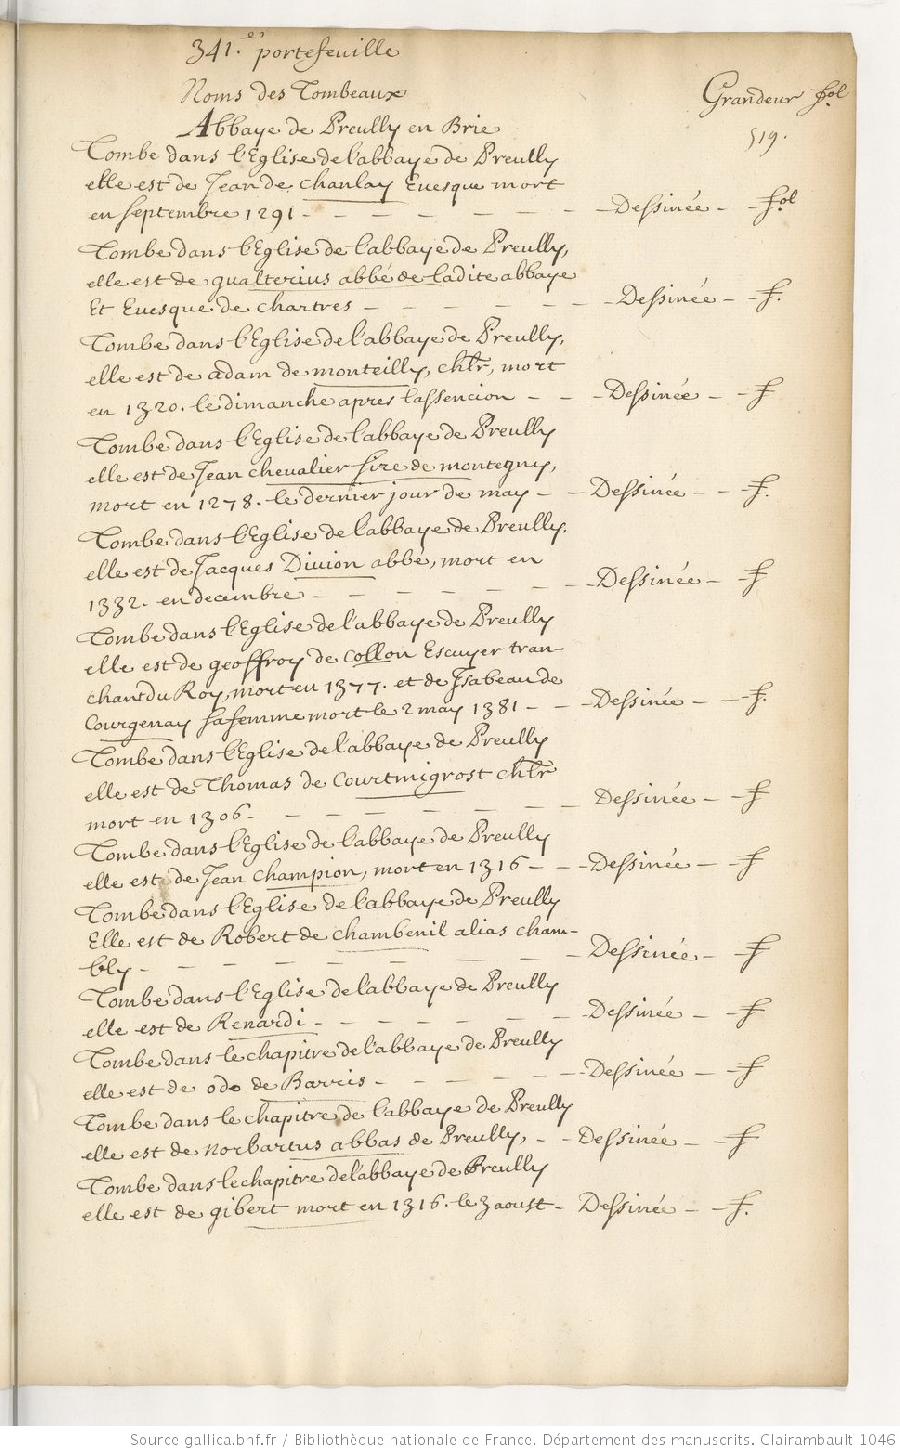 341.e portefeuille
Noms des Tombeaux
Grandeur fol
Abbaye de Preully en Brie
519.
Tombe dans l'Eglise de l'abbaye de Preully
elle est de Jean de chanlay Euesque mort
en septembre 1291 - - - - - - - Dessinée - - fol
Tombe dans l'Eglise de l'abbaye de Preully,
elle est de gualterius abbé de ladite abbaye
Et Euesque de chartres - - - - - - Dessinée - - f.
Tombe dans l'Eglise de l'abbaye de Preully,
elle est de adam de monteilly, chlr, mort
en 1320. le dimanche apres l'assencion - - - Dessinée - - f
Tombe dans l'Eglise de l'abbaye de Preully
elle est de Jean chevalier sire de montegny,
mort en 1278. le dernier jour de may - - Dessinée - - f.
Tombe dans l'Eglise de l'abbaye de Preully.
elle est de Jacques Diuion abbé, mort en
1332. en decembre - - - - - - - Dessinée - - f
Tombe dans l'Eglise de l'abbaye de Preully
elle est de geoffroy de collon Escuyer tran-
chant du Roy, mort en 1377. et de Jsabeau de
Courgenay sa femme morte le 2 may 1381 - - - Dessinée - - f.
Tombe dans l'Eglise de l'abbaye de Preully
elle est de Thomas de Courtmigrost chlr
mort en 1306 - - - - - - - - Dessinée - - f
Tombe dans l'Eglise de l'abbaye de Preully
elle est de Jean Champion, mort en 1316 - - - Dessinée - - f
Tombe dans l'Eglise de l'abbaye de Preully
Elle est de Robert de chambenil alias cham-
bly - - - - - - - - - Dessinée. - - f
Tombe dans l'Eglise de l'abbaye de Preully
elle est de Renardi - - - - - - - Dessinée - - f
Tombe dans le chapitre de l'abbaye de Preully
elle est de odo de Barris - - - - - - Dessinée - - f
Tombe dans le chapitre de l'abbaye de Preully
elle est de Norbartus abbas de Preully, - - Dessinée - - f
Tombe dans le chapitre de l'abbaye de Preully
elle est de gibert mort en 1316. le 3 aoust - Dessinée - - f.
Source gallica.bnf.fr / Bibliothèque nationale de France. Département des manuscrits. Clairambault 1046